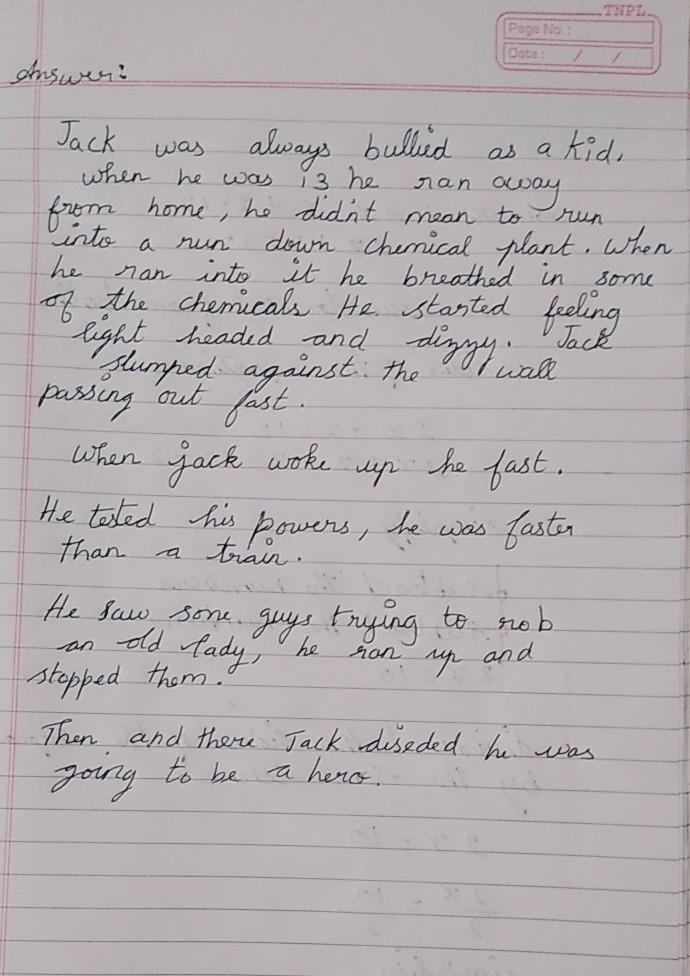 TNPL
Page No. :
Date : / /
Answer:
Jack was always bullied as a kid,
when he was 13 he ran away
from home, he didn't mean to run
into a run down chemical plant. When
he ran into it he breathed in some
of the chemicals. He started feeling
light headed and dizzy. Jack
slumped against the wall
passing out fast.
When jack woke up he fast.
He tested his powers, he was faster
than a train.
He saw some guys trying to rob
an old lady, he ran up and
stopped them.
Then and there Jack diseded he was
going to be a hero.